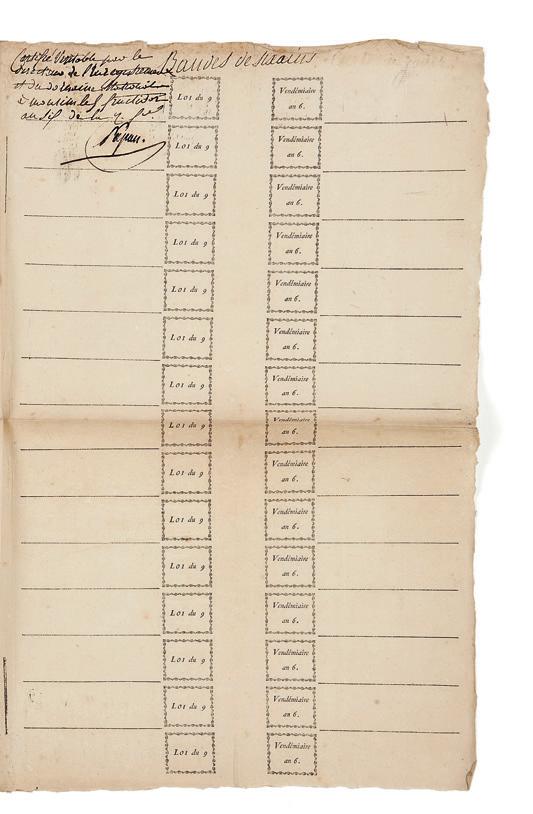 Certifié Véritable par le
Directeur de l'Enregistrement
et du domaine National
à moulins le fructidor
an six de la
Bandes de
Loi du 9 Vendémiaire
an 6.
Loi du 9 Vendémiaire
an 6.
Loi du 9 Vendémiaire
an 6.
Loi du 9 Vendémiaire
an 6.
Loi du 9 Vendémiaire
an 6.
Loi du 9 Vendémiaire
an 6.
Loi du 9 Vendémiaire
an 6.
Loi du 9 Vendémiaire
an 6.
Loi du 9 Vendémiaire
an 6.
Loi du 9 Vendémiaire
an 6.
Loi du 9 Vendémiaire
an 6.
Loi du 9 Vendémiaire
an 6.
Loi du 9 Vendémiaire
an 6.
Loi du 9 Vendémiaire
an 6.
Loi du 9 Vendémiaire
an 6.